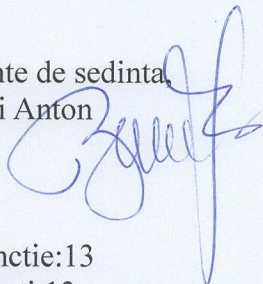 nte de sedinta,
i Anton
nctie:13